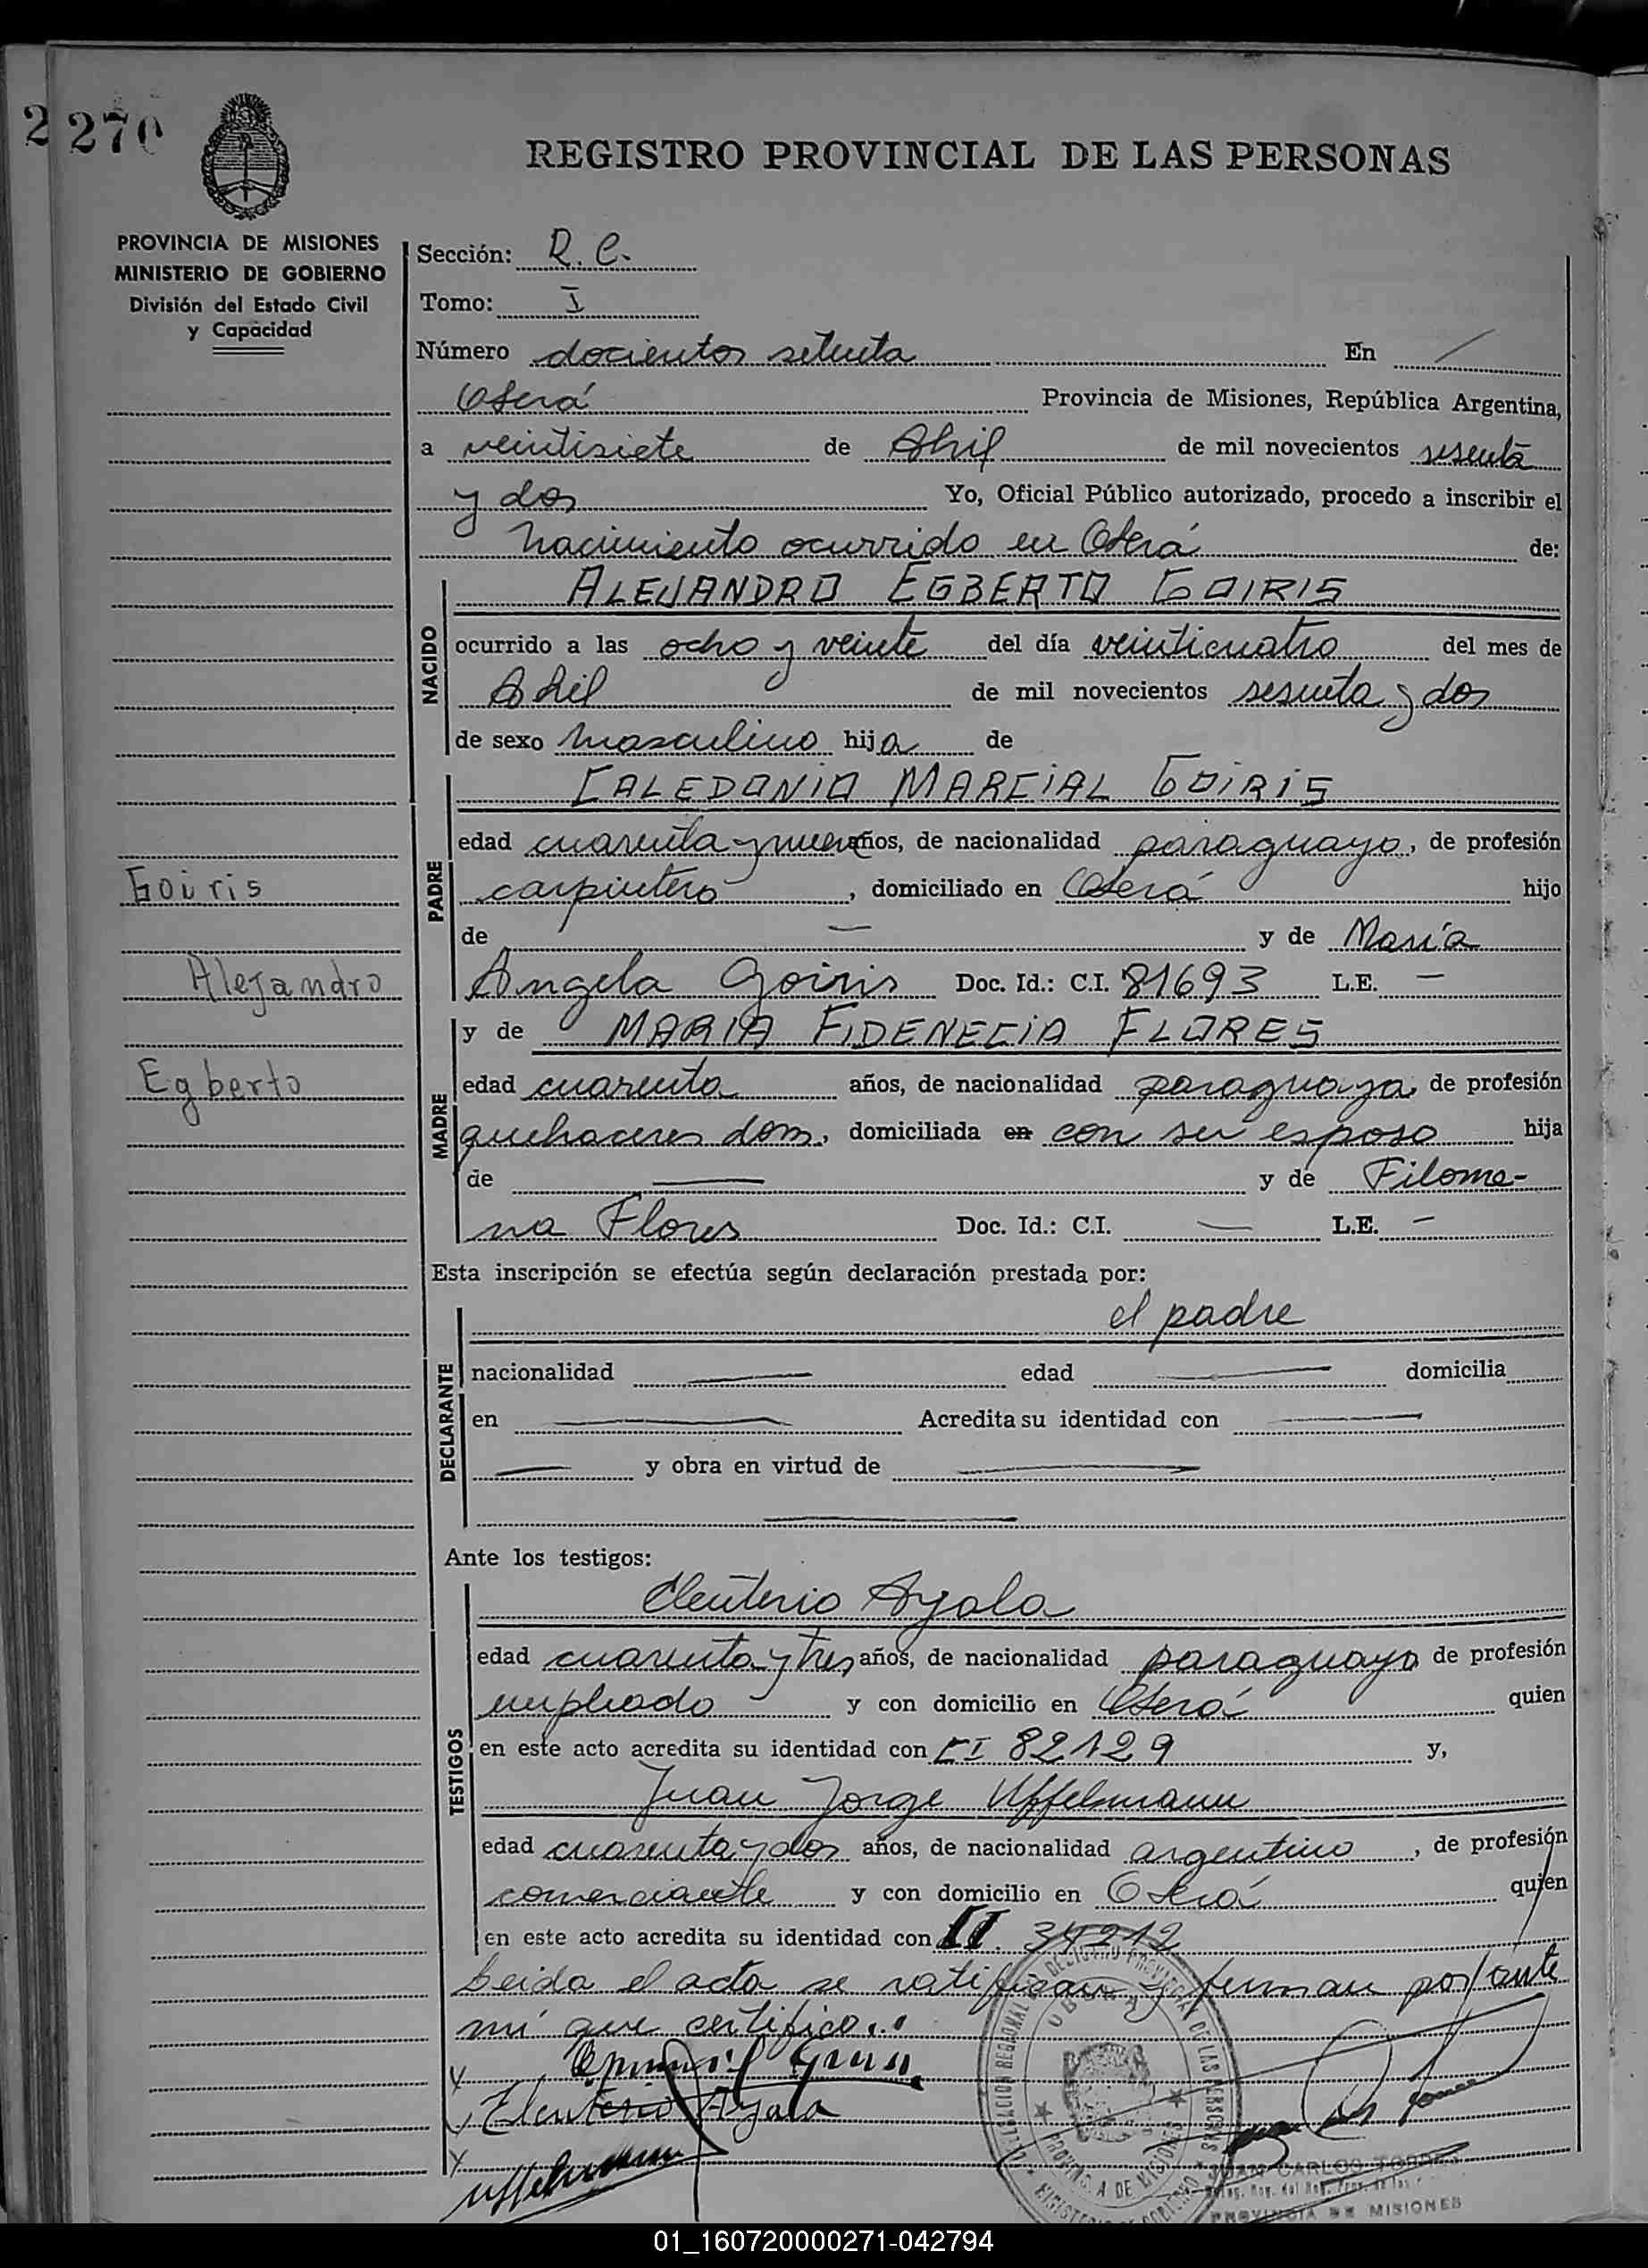 2 270
REGISTRO PROVINCIAL DE LAS PERSONAS
PROVINCIA DE MISIONES
MINISTERIO DE GOBIERNO
División del Estado Civil
y Capacidad
Sección: R. C.
Tomo: I
Número docientos setenta En
Oberá Provincia de Misiones, República Argentina,
a veintisiete de Abril de mil novecientos sesenta
y dos Yo, Oficial Público autorizado, procedo a inscribir el
nacimiento ocurrido en Oberá de:
NACIDO
ALEJANDRO EGBERTO GOIRIS
ocurrido a las ocho y veinte del día veinticuatro del mes de
Abril de mil novecientos sesenta y dos
de sexo masculino hija de
PADRE
CALEDONIO MARCIAL GOIRIS
edad cuarenta y nueve años, de nacionalidad paraguayo, de profesión
carpintero, domiciliado en Oberá hijo
de — y de María
Angela Goiris Doc. Id.: C.I. 81693 L.E. —
Goiris
Alejandro
Egberto
MADRE
y de MARIA FIDENECIA FLORES
edad cuarenta años, de nacionalidad paraguaya, de profesión
quehaceres dom., domiciliada en con su esposo hija
de — y de Filome-
na Flores Doc. Id.: C.I. — L.E. —
Esta inscripción se efectúa según declaración prestada por:
DECLARANTE
el padre
nacionalidad — edad — domicilia
en — Acredita su identidad con —
— y obra en virtud de —
Ante los testigos:
TESTIGOS
Eleuterio Ayala
edad cuarenta y tres años, de nacionalidad paraguayo de profesión
empleado y con domicilio en Oberá quien
en este acto acredita su identidad con CI 82129 y,
Juan Jorge Uffelmann
edad cuarenta y dos años, de nacionalidad argentino, de profesión
comerciante y con domicilio en Oberá quien
en este acto acredita su identidad con 34212
Leida el acta se ratifican y firman por ante
mí que certifico..
Eleuterio Ayala
Uffelmann
DELEGACION REGIONAL DEL REGISTRO PROVINCIAL DE LAS PERSONAS
OBERA
PROVINCIA DE MISIONES
MINISTERIO DE GOBIERNO
JUAN CARLOS TORRES
PROVINCIA DE MISIONES
01_160720000271-042794